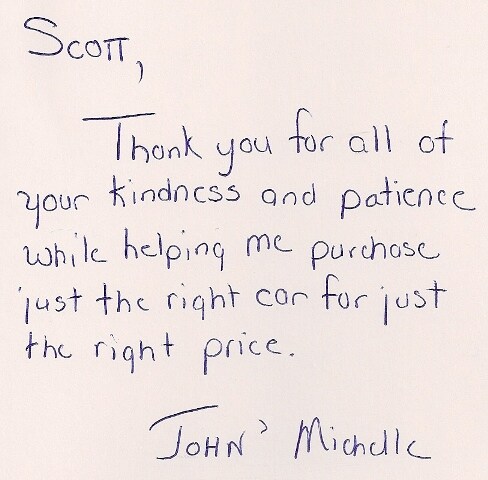 Scott,
Thank you for all of
your kindness and patience
while helping me purchase
just the right car for just
the right price.
John > Michelle